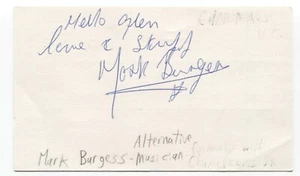 Hello Glen
love & Stuff
Mark Burgess
Alternative
Mark Burgess - Musician